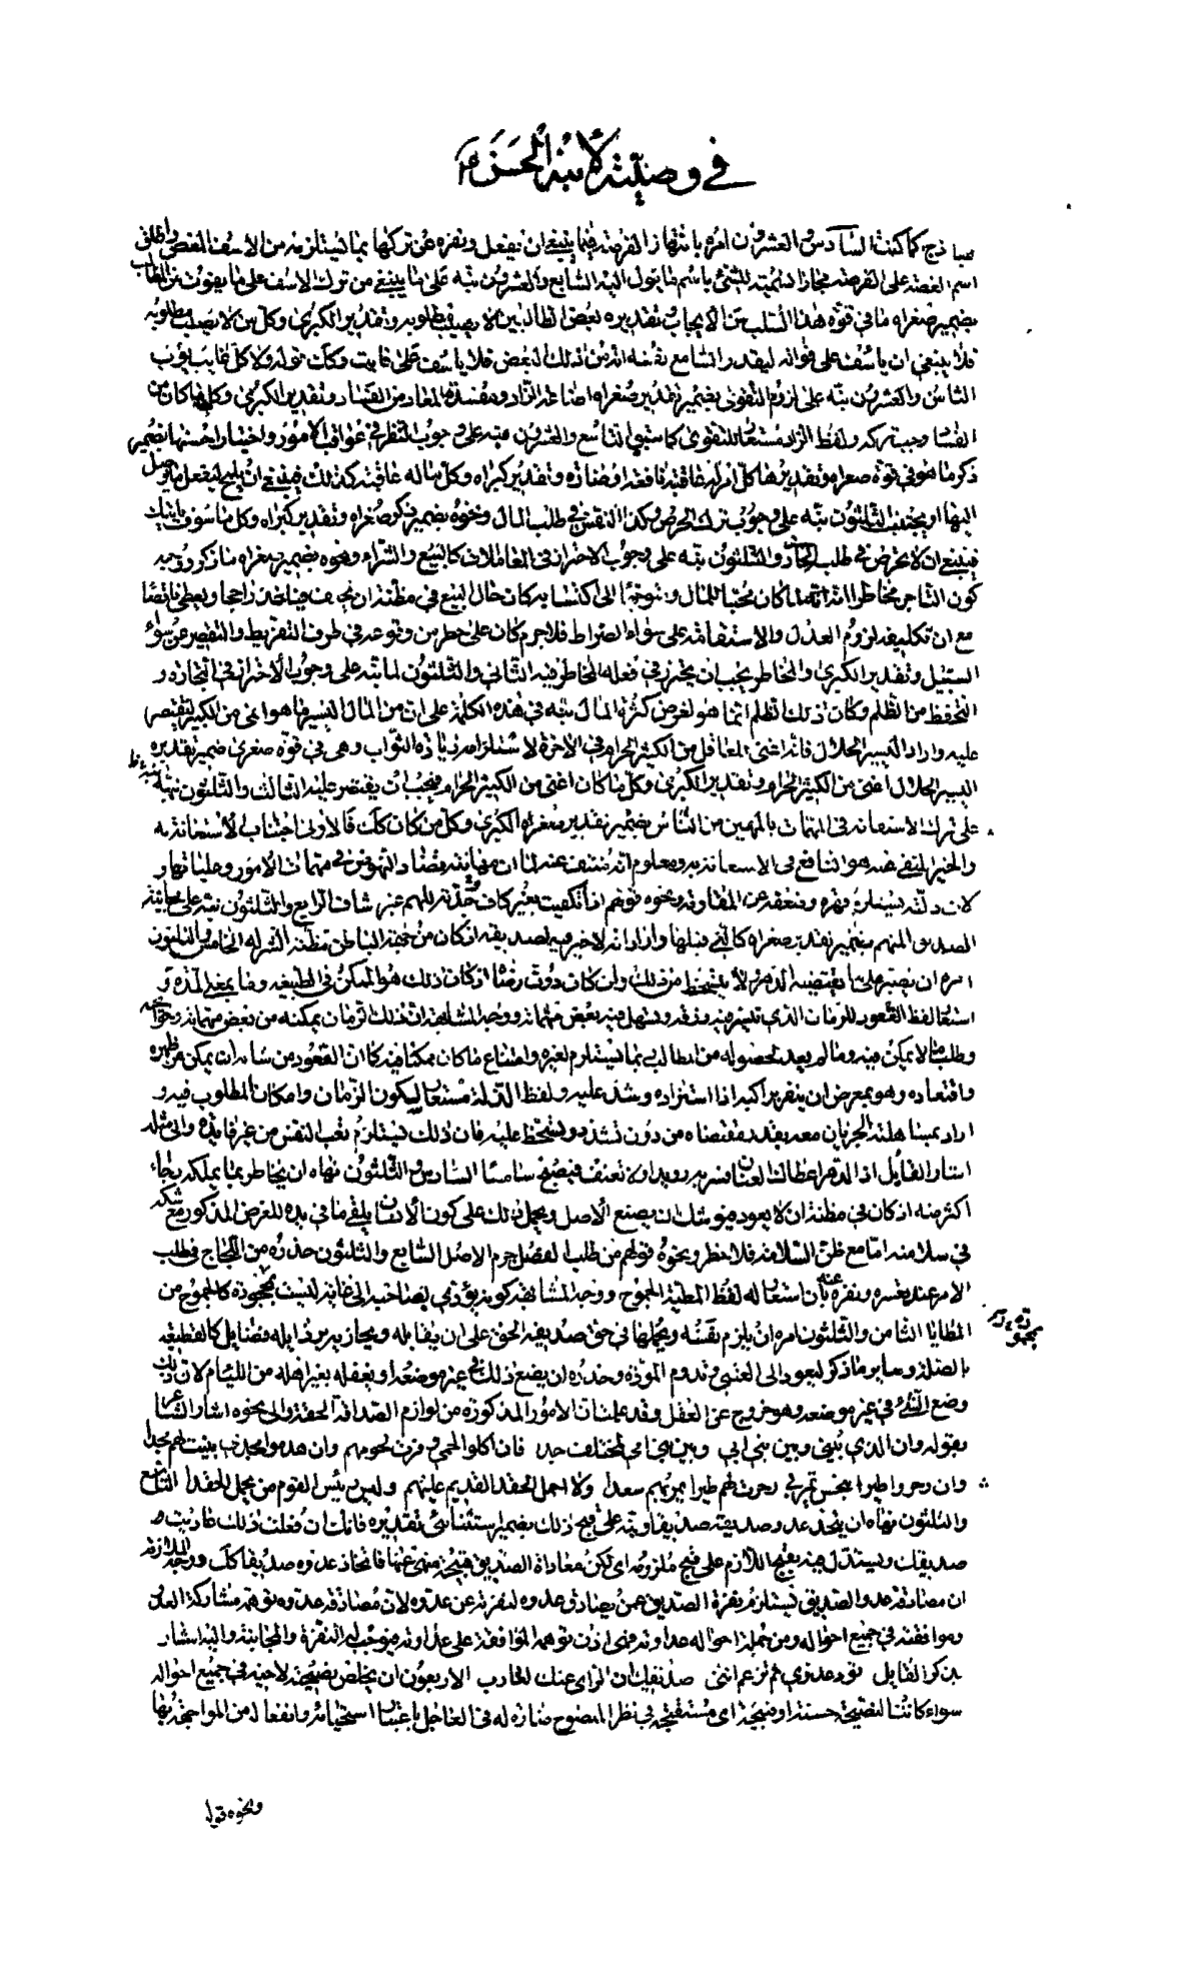 في وصيته لابنه الحسن ع
ساذج كما كنت السادس والعشرون امره بانتهاز الفرصة فيما ينبغي ان يفعل ونفره عن تركها بما يستلزمه من الاسف والغصص واطلق
اسم الغصة على الفرصة مجازا تسمية للشئ باسم ما يؤل اليه السابع والعشرون نبه على ما ينبغي من ترك الاسف على ما يفوت من المطالب
بضمير صغراه ما في قوة هذا السلب من الايجاب وتقديره بعض الطالبين لا يصيب مطلوبه وتقدير الكبرى وكل من لا يصيب مطلوبه
فلا ينبغي ان ياسف على فواته ليقدر السامع نفسه انه من ذلك البعض فلا ياسف على فايت وكك قوله ولا كل غايب يؤب
الثامن والعشرون نبه على لزوم التقوى بضمير تقدير صغراه اضاعة الزاد ومفسدة المعاد من الفساد وتقدير الكبرى وكلما كان من
الفساد وجب تركه ولفظ الزاد مستعار للتقوى كما سبق التاسع والعشرون نبه على وجوب النظر في عواقب الامور واختيار احسنها بضمير
ذكر ما هو في قوة صغراه وتقديرها كل امر له عاقبة نافعة او ضارة وتقدير كبراه وكل ماله عاقبة كذلك فينبغي ان يلمح ليفعل ما يوصل
اليها او يجتنب الثلثون نبه على وجوب ترك الحرص وكد النفس في طلب المال ونحوه بضمير ذكر صغراه وتقدير كبراه وكل ما سوف ياتيك
فينبغي ان لا تحرص في طلبه الحادي والثلثون نبه على وجوب الاحتراز في المعاملات كالبيع والشراء ونحوه بضمير صغراه ما ذكر ووجه
كون التاجر مخاطرا انه لما كان محبا للمال ومتوجها الى اكتسابه كان حال البيع في مظنة ان يحيف فياخذ راجحا ويعطي ناقصا
مع ان تكليفه لزوم العدل والاستقامة على سواء الصراط فلا جرم كان على خطر من وقوعه في طرف التفريط والتقصير عن سواء
السبيل وتقدير الكبرى والمخاطر يجب ان يحترز في فعله المخاطر فيه الثاني والثلثون لما نبه على وجوب الاحتراز في التجارة و
التحفظ من الظلم وكان ذلك الظلم انما هو لغرض كثرة المال نبه في هذه الكلمة على ان من المال اليسير ما هو انمى من الكثير ليقتصر
عليه واراد اليسير الحلال فانه انمى للعاقل من الكثير الحرام في الاخرة لاستلزامه زيادة الثواب وهي في قوة صغرى ضمير تقديره
اليسير الحلال انمى من الكثير الحرام وتقدير الكبرى وكل ما كان انمى من الكثير الحرام فيجب ان يقتصر عليه الثالث والثلثون نبه
على ترك الاستعانة في المهمات بالمهين من الناس بضمير تقدير صغراه الكبرى وكل من كان كك فالاولى اجتناب الاستعانة به
والخير المنفي عنه هو النافع في الاستعانة به ومعلوم انه منتف عنه لما ان مهانته تضاد النهوض في مهمات الامور وعلياتها و
لان ذلته يستلزم قهره وضعفه عن المقاومة ونحوه قولهم اذا تكفيت بغير كاف وجدته للهم غير شاف الرابع والثلثون نبه على مجانبة
الصديق المتهم بضمير تقدير صغراه كالتي قبلها واراد انه لا خير فيه لصديقه اذ كان من جهة الباطن مظنة الشر له الخامس والثلثون
امره ان يصبر على ما يقتضيه الدهر ولا يتسخط من ذلك وان كان دون رضاه اذ كان ذلك هو الممكن في الطبيعة وما يعطى المدة و
استعار لفظ القعود للزمان الذي تيسر فيه وقد وتسهل فيه بعض مهماته ووجه المشابهة ان ذلك الزمان يمكنه من بعض مهماته وحوائجه
وطلب ما لا يمكن فيه وما لم يعد لحصوله من المطالب بما يستلزم لغيره وامتناع ما كان ممكنا فيه كما ان القعود من شانه ان يمكن من ظهره
واقتعاده وهو بمعرض ان ينفر براكبه اذا استزاده وشد عليه ولفظ الذلة مستعار لسكون الزمان وامكان المطلوب فيه و
اراد بمساهلته الجريان معه بقدر مقتضاه من دون تشدد وتسخط عليه فان ذلك يستلزم تعب النفس من غير فايدة والى مثله
اشار القايل اذا الدهر اعطاك العنان فسر به رويدا ولا تعنف فيصبح شامسا السادس والثلثون نهاه ان يخاطر بما يملكه رجاء
اكثر منه اذ كان في مظنة ان لا يعود فيوشك ان يضيع الاصل ويحمل ذلك على كون الانسان يلقي ما في يده للغرض المذكور مع شكه
في سلامته اما مع ظن السلامة فلا خطر ونحوه قولهم من طلب الفضل حرم الاصل السابع والثلثون حذره من اللجاج في طلب
الامر عند تعسره ونفره عنه بان استعار له لفظ المطية الجموح ووجه المشابهة كونه يؤدي بصاحبه الى غاية ليست بمحمودة كالجموح من
المطايا الثامن والثلثون امره ان يلزم نفسه ويحملها في حق صديقه الحق على ان يقابله ويجازيه برذايله فضايل كالقطيعة
بالصلة وساير ما ذكر ليعود الى العتبى وتدوم المودة وحذره ان يضع ذلك في غير موضعه او يفعله بغير اهله من اللئام لان ذلك
وضع الشئ في غير موضعه وهو خروج عن العقل وقد علمت ان الامور المذكورة من لوازم الصداقة الحقة والى نحوه اشار الشاعر
بقوله وان الذي بيني وبين بني ابي وبين بني امي لمختلف جدا فان اكلوا لحمي وفرت لحومهم وان هدموا مجدي بنيت لهم مجدا
وان زجروا طيرا بنحس تمر بي زجرت لهم طيرا تمر بهم سعدا ولا احمل الحقد القديم عليهم وليس رئيس القوم من يحمل الحقدا التاسع
والثلثون نهاه ان يتخذ عدو صديقه صديقا ونبه على قبح ذلك بضمير استثنائي تقديره فانك ان فعلت ذلك عاديت
صديقك ويستدل فيه بقبح اللازم على قبح ملزومه اي لكن معاداة الصديق قبيحة منهي عنها فاتخاذ عدوه صديقا كك ووجه الملازمة
ان مصادقة عدو الصديق يستلزم نفرة الصديق عمن يصادق عدوه لنفرته عن عدوه ولان مصادقة عدوه توهمه مشاركة العدو
وموافقته في جميع احواله ومن جملة احواله عداوته فهي اذن توهم الموافقة على عداوته فيوجب له النفرة والمجانبة واليه اشار
بذكر القايل تود عدوي ثم تزعم انني صديقك ان الراي عنك لعازب الاربعون ان يخلص نصيحته لاخيه في جميع احواله
سواء كانت النصيحة حسنة او قبيحة اي مستقبحة في نظر المنصوح ضارة له في العاجل باعتبار استحيائه وانفعاله من المواجهة بها
ونحوه قوله